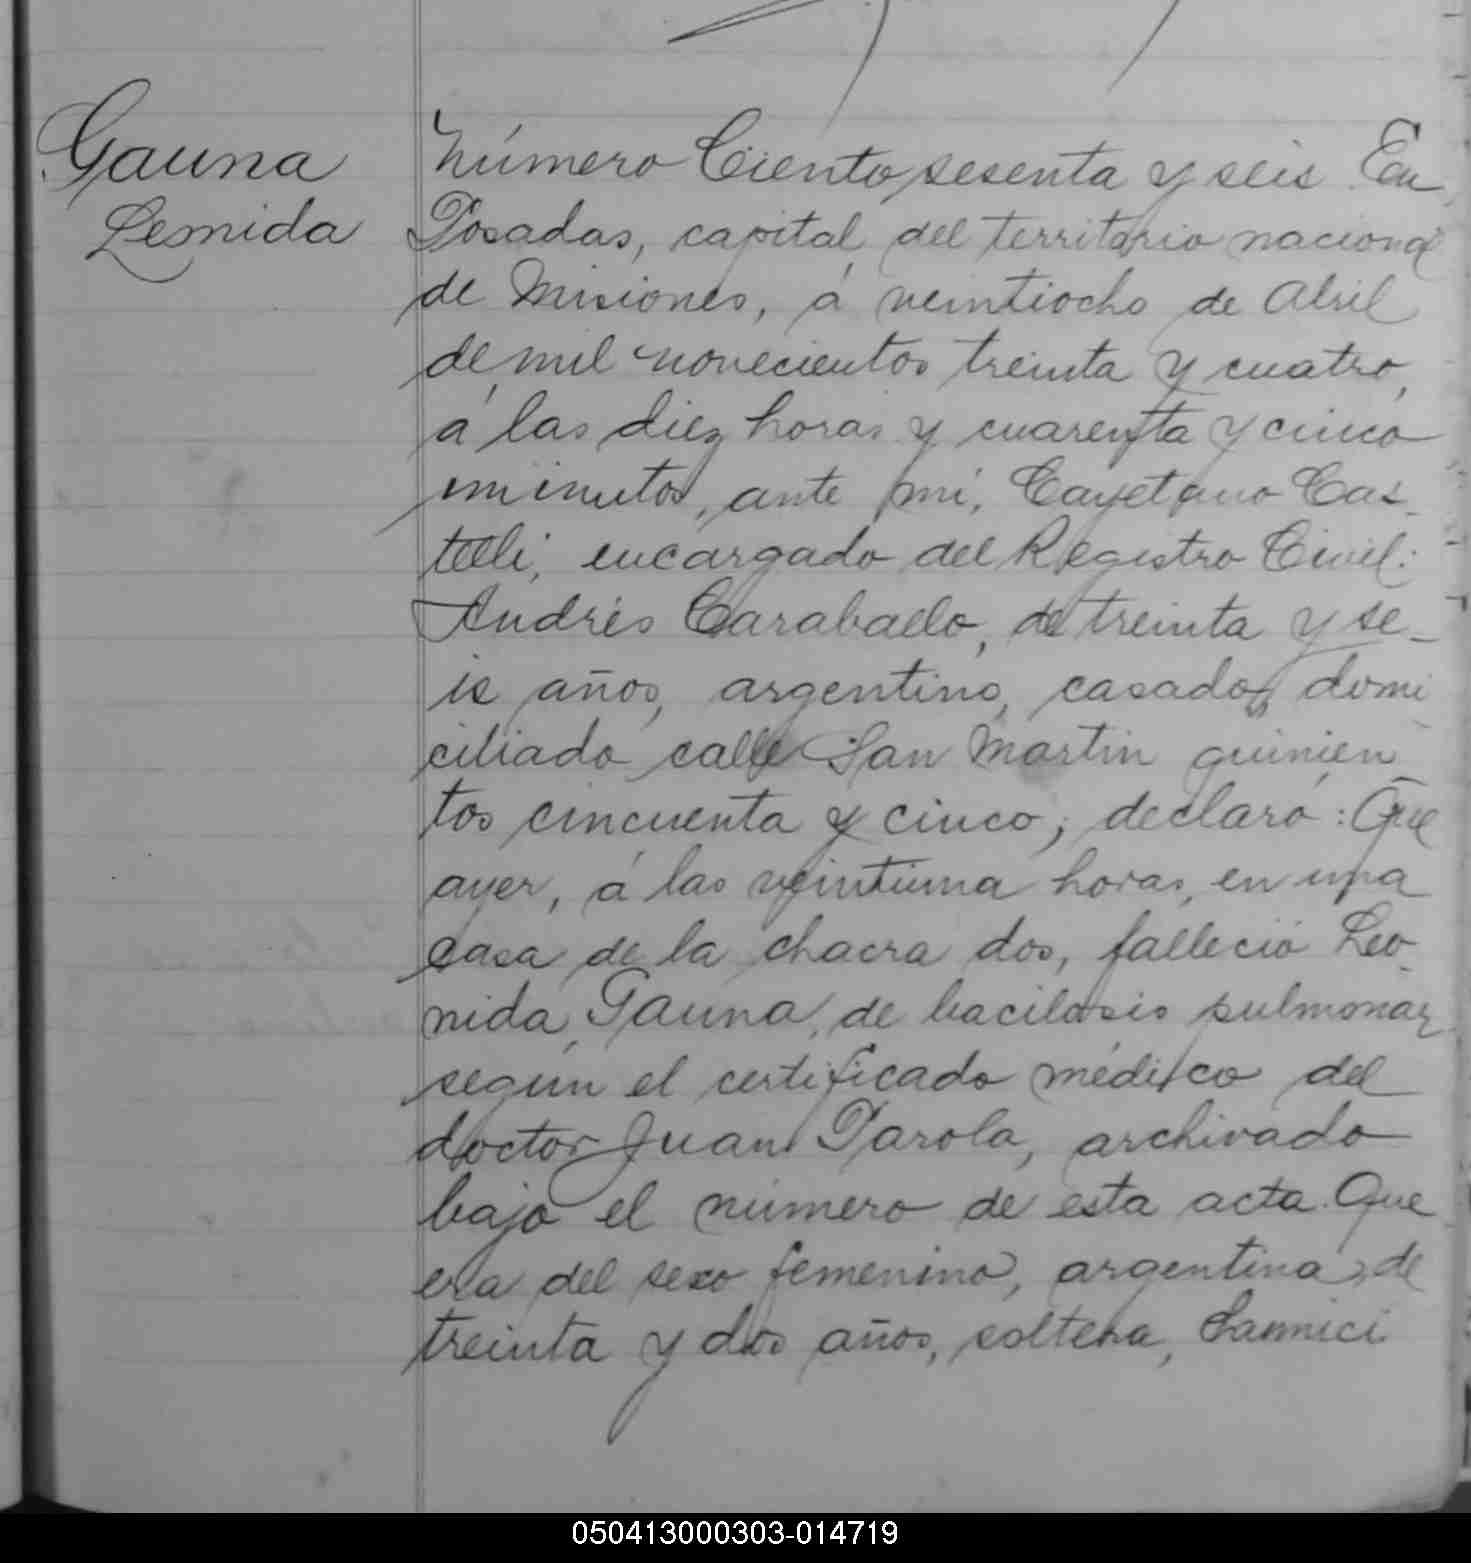 Gauna
Lemida
Número Ciento sesenta y seis. En
Posadas, capital del territorio nacional
de Misiones, á veintiocho de Abril
de mil novecientos treinta y cuatro,
á las diez horas y cuarenta y cinco
minutos, ante mí, Cayetano Cas-
telli, encargado del Registro Civil:
Andrés Caraballo, de treinta y se-
is años, argentino, casado, domi
ciliado calle San Martin quinien
tos cincuenta y cinco; declaró: Que
ayer, á las veintiuna horas, en una
casa de la chacra dos, falleció Leo-
nida Gauna, de bacilosis pulmonar
según el certificado médico del
doctor Juan Parola, archivado
bajo el número de esta acta. Que
era del sexo femenino, argentina, de
treinta y dos años, soltera,
050413000303-014719